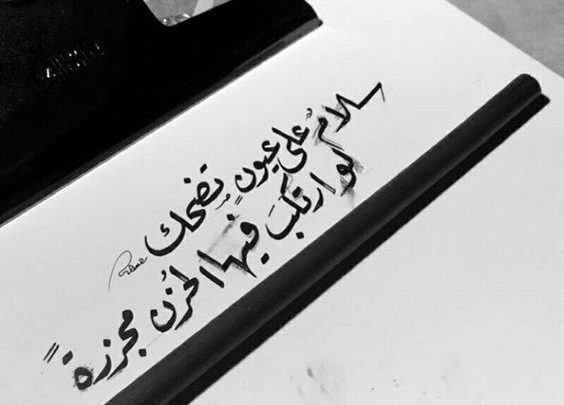 سلامٌ على عيونٍ تضحك
لو ارتكبَ فيها الحُزن مجزرةً